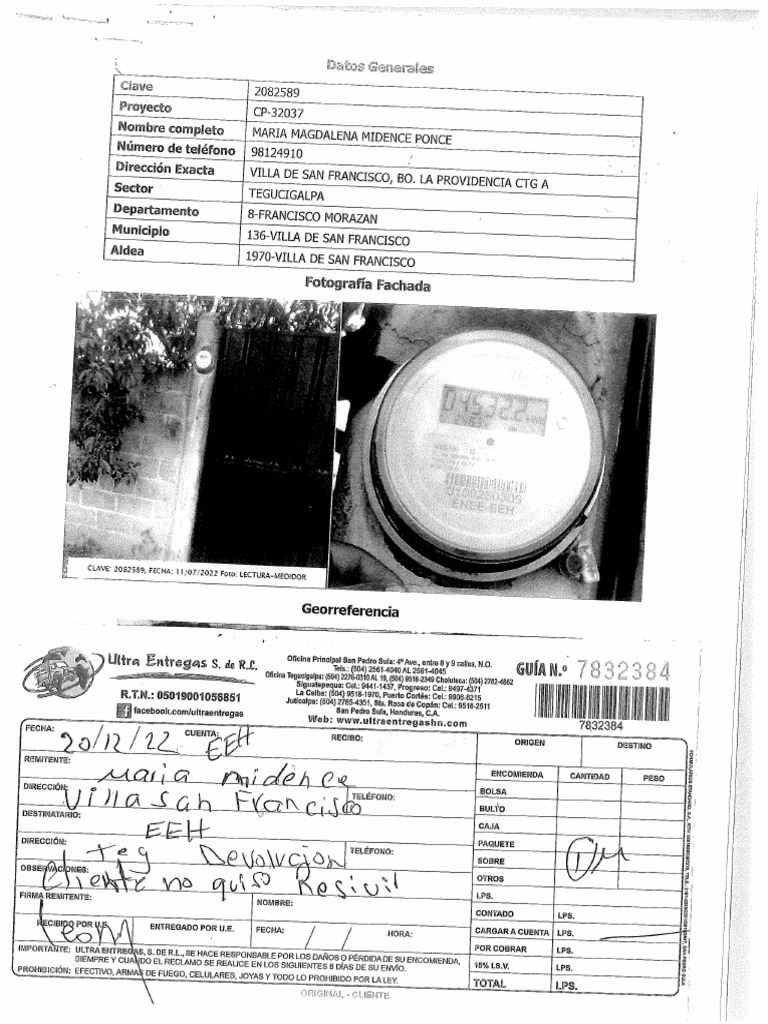 Datos Generales
Clave 2082589
Proyecto CP-32037
Nombre completo MARIA MAGDALENA MIDENCE PONCE
Número de teléfono 98124910
Dirección Exacta VILLA DE SAN FRANCISCO, BO. LA PROVIDENCIA CTG A
Sector TEGUCIGALPA
Departamento 8-FRANCISCO MORAZAN
Municipio 136-VILLA DE SAN FRANCISCO
Aldea 1970-VILLA DE SAN FRANCISCO
Fotografía Fachada
045322
0100250309
ENEE-EEH
CLAVE: 2082589, FECHA: 11/07/2022 Foto: LECTURA-MEDIDOR
Georreferencia
Ultra Entregas S. de R.L.
R.T.N.: 05019001056851
facebook.com/ultraentregas
Oficina Principal San Pedro Sula: 4ª Ave., entre 8 y 9 calles, N.O.
Tels.: (504) 2561-4040 AL 2561-4045
Oficina Tegucigalpa: (504) 2276-0310 AL 19, (504) 9518-2349 Choluteca: (504) 2782-4862
Siguatepeque: Cel.: 9441-1437, Progreso: Cel.: 9497-4371
La Ceiba: (504) 9518-1970, Puerto Cortés: Cel.: 9906-8215
Juticalpa: (504) 2785-4351, Sta. Rosa de Copán: Cel.: 9518-2511
San Pedro Sula, Honduras, C.A.
Web: www.ultraentregashn.com
GUÍA N.º 7832384
7832384
FECHA: 20/12/22 CUENTA: EEH RECIBO:
REMITENTE: Maria midence
DIRECCIÓN: Villa San Francisco TELÉFONO:
DESTINATARIO: EEH
DIRECCIÓN: Teg Devolucion TELÉFONO:
OBSERVACIONES: Cliente no quiso Resivil
FIRMA REMITENTE: NOMBRE:
RECIBIDO POR U.E. ENTREGADO POR U.E. FECHA: / / HORA:
ORIGEN DESTINO
ENCOMIENDA CANTIDAD PESO
BOLSA
BULTO
CAJA
PAQUETE
SOBRE 1
OTROS
LPS.
CONTADO LPS.
CARGAR A CUENTA LPS.
POR COBRAR LPS.
15% I.S.V. LPS.
TOTAL LPS.
IMPORTANTE: ULTRA ENTREGAS, S. DE R.L., SE HACE RESPONSABLE POR LOS DAÑOS O PÉRDIDA DE SU ENCOMIENDA,
SIEMPRE Y CUANDO EL RECLAMO SE REALICE EN LOS SIGUIENTES 8 DÍAS DE SU ENVÍO.
PROHIBICIÓN: EFECTIVO, ARMAS DE FUEGO, CELULARES, JOYAS Y TODO LO PROHIBIDO POR LA LEY.
ORIGINAL - CLIENTE